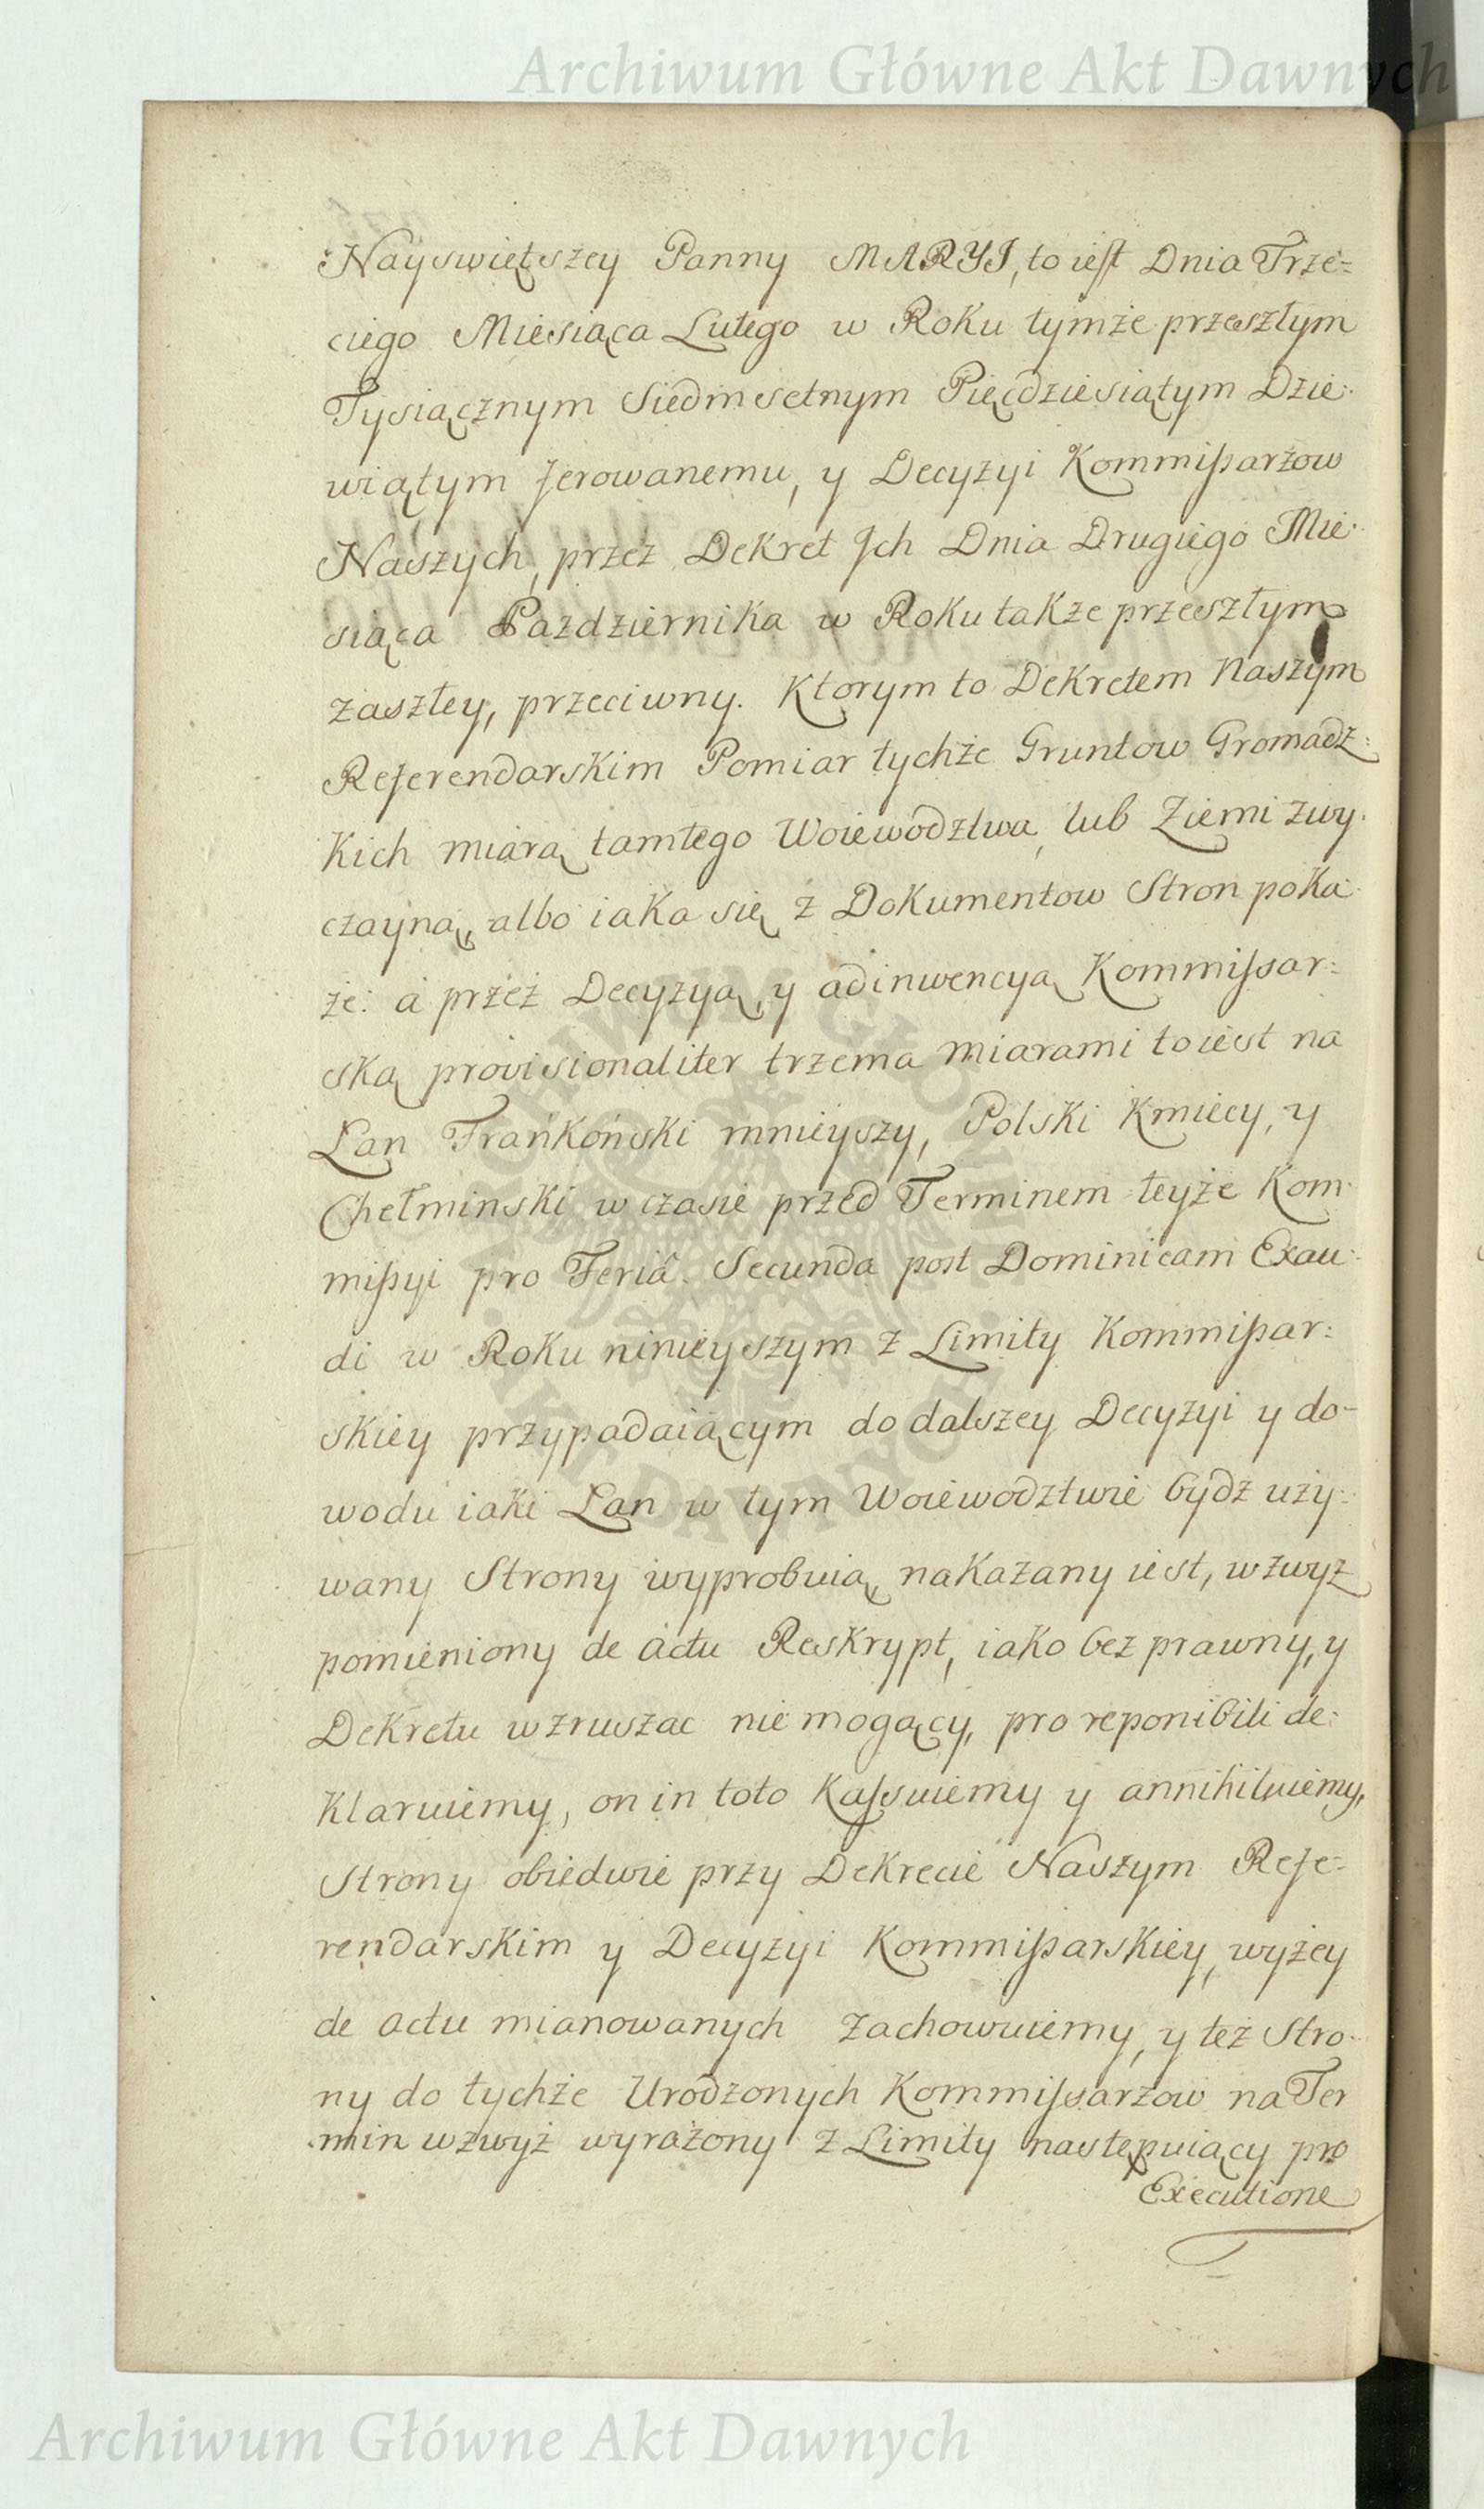 Archiwum Główne Akt Dawnych
Nayswiętszey Panny MARYI, to iest Dnia Trze=
ciego Miesiąca Lutego w Roku tymże przeszłym
Tysiącznym Siedmsetnym Pięcdziesiątym Dzie:
wiątym ferowanemu, y Decyzyi Kommissarzow
Naszych, przez Dekret Ich Dnia Drugiego Mie:
siąca Pazdziernika w Roku także przeszłym
zaszłey, przeciwny. Ktorym to Dekretem Naszym
Referendarskim Pomiar tychże Gruntow Gromadz:
kich miarą tamtego Woiewodztwa, lub Ziemi zwy:
czayną, albo iaka się z Dokumentow Stron poka:
że: a przez Decyzyą, y adinwencyą Kommissar:
ską provisionaliter trzema miarami to iest na
Łan Frańkoński mnieyszy, Polski Kmiecy, y
Chełminski w czasie przed Terminem teyże Kom:
missyi pro Feriâ Secunda post Dominicam Exau:
di w Roku ninieyszym z Limity Kommissar:
skiey przypadaiącym do dalszey Decyzyi y do-
wodu iaki Łan w tym Woiewodztwie bydz uży:
wany Strony wyprobuią, nakazany iest, wzwyz
pomieniony de actu Reskrypt, iako bez prawny, y
Dekretu wzruszac nie mogący, pro reponibili de:
klaruiemy, on in toto Kassuiemy y annihiluiemy,
Strony obiedwie przy Dekrecie Naszym Refe=
rendarskim y Decyzyi Kommissarskiey, wyżey
de actu mianowanych zachowuiemy, y też Stro:
ny do tychże Urodzonych Kommissarzow na Ter
min wzwyż wyrażony z Limity następuiący pro
Executione
Archiwum Główne Akt Dawnych